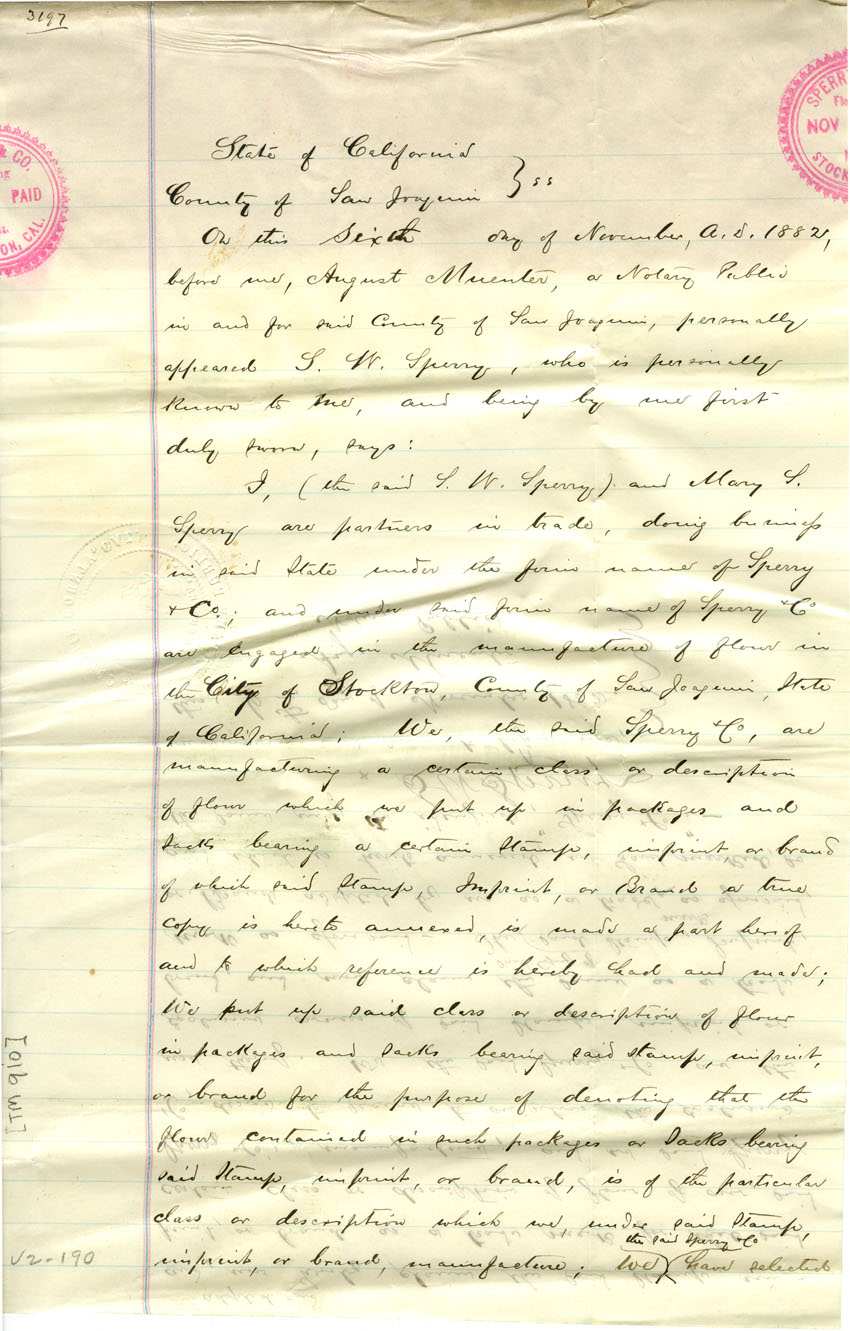 3197
State of California
County of San Joaquin } ss
On this Sixth day of November, A.D. 1882,
before me, August Muenter, a Notary Public
in and for said County of San Joaquin, personally
appeared S. W. Sperry, who is personally
known to me, and being by me first
duly sworn, says:
I, (the said S. W. Sperry) and Mary S.
Sperry are partners in trade, doing business
in said State under the firm name of Sperry
& Co.; and under said firm name of Sperry & Co
are engaged in the manufacture of flour in
the City of Stockton, County of San Joaquin, State
of California; We, the said Sperry & Co, are
manufacturing a certain class or description
of flour which we put up in packages and
sacks bearing a certain Stamp, imprint, or brand
of which said Stamp, Imprint, or Brand a true
copy is hereto annexed, is made a part hereof
and to which reference is hereby had and made;
We put up said class or description of flour
in packages and sacks bearing said stamp, imprint,
or brand for the purpose of denoting that the
flour contained in such packages or Sacks bearing
said Stamp, imprint, or brand, is of the particular
class or description which we, under said Stamp,
the said Sperry & Co
imprint, or brand, manufacture; We have selected
& CO.
PAID
ON, CAL.
SPERR
NOV
STOCK
[TM 910]
V2-190